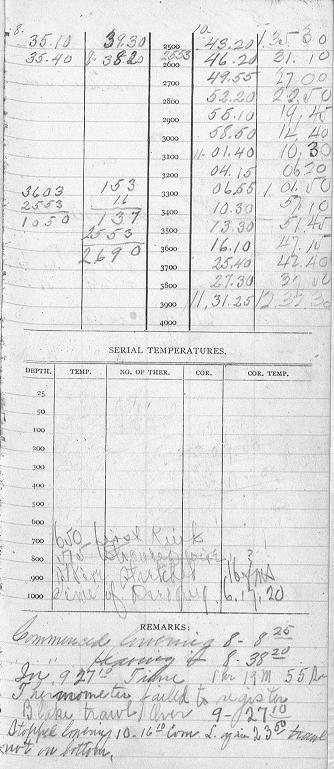 8. 10.
35.10 39.30 2500 43.20 1.35 30
35.40 8-38.20 2553 46.20 31.10
2600
2700 49.55 27.00
2800 52.20 22.50
2900 55.10 19.45
3000 58.50 14.40
3100 11-01.40 10.30
3200 04.15 06.20
3603 153 3300 06.55 1.01.50
2553 16 3400 10.30
1050 137 3500 13.30 51.45
2553 3600 16.10 47.15
2690 3700 25.40 42.40
3800 27.30
3900 11,31.25
4000
SERIAL TEMPERATURES.
DEPTH. TEMP. NO. OF THER. COR. COR. TEMP.
25
50
100
200
300
400
500
600
700 650
800 175
900 Stretched 16 yds
1000 Time of 6.17.20
REMARKS:
Commenced lowering 8- 8 25
" heaving 8-38 20
In 9 27 10 Time 1 hr 19 M 55
Thermometer failed to register
Blake trawl Over 9-27 10
Stopped lowering 10-16 10 com L. again 23 50 trawl
not on bottom.